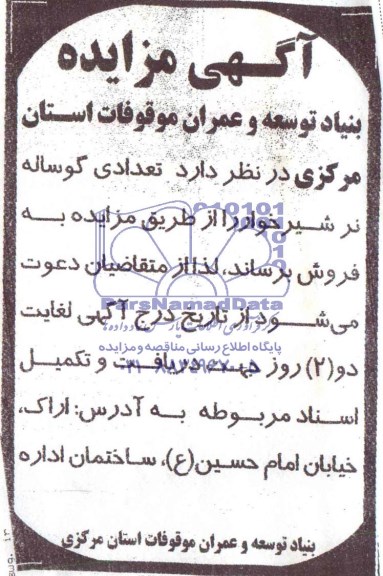 آگهی مزایده
بنیاد توسعه و عمران موقوفات استان
مرکزی در نظر دارد تعدادی گوساله
نر شیرخوار را از طریق مزایده به
فروش برساند، لذا از متقاضیان دعوت
ParsNamadData
می‌شود از تاریخ درج آگهی لغایت
پایگاه اطلاع رسانی مناقصه و مزایده
دو(۲) روز جهت دریافت و تکمیل
اسناد مربوطه به آدرس: اراک،
خیابان امام حسین(ع)، ساختمان اداره
بنیاد توسعه و عمران موقوفات استان مرکزی